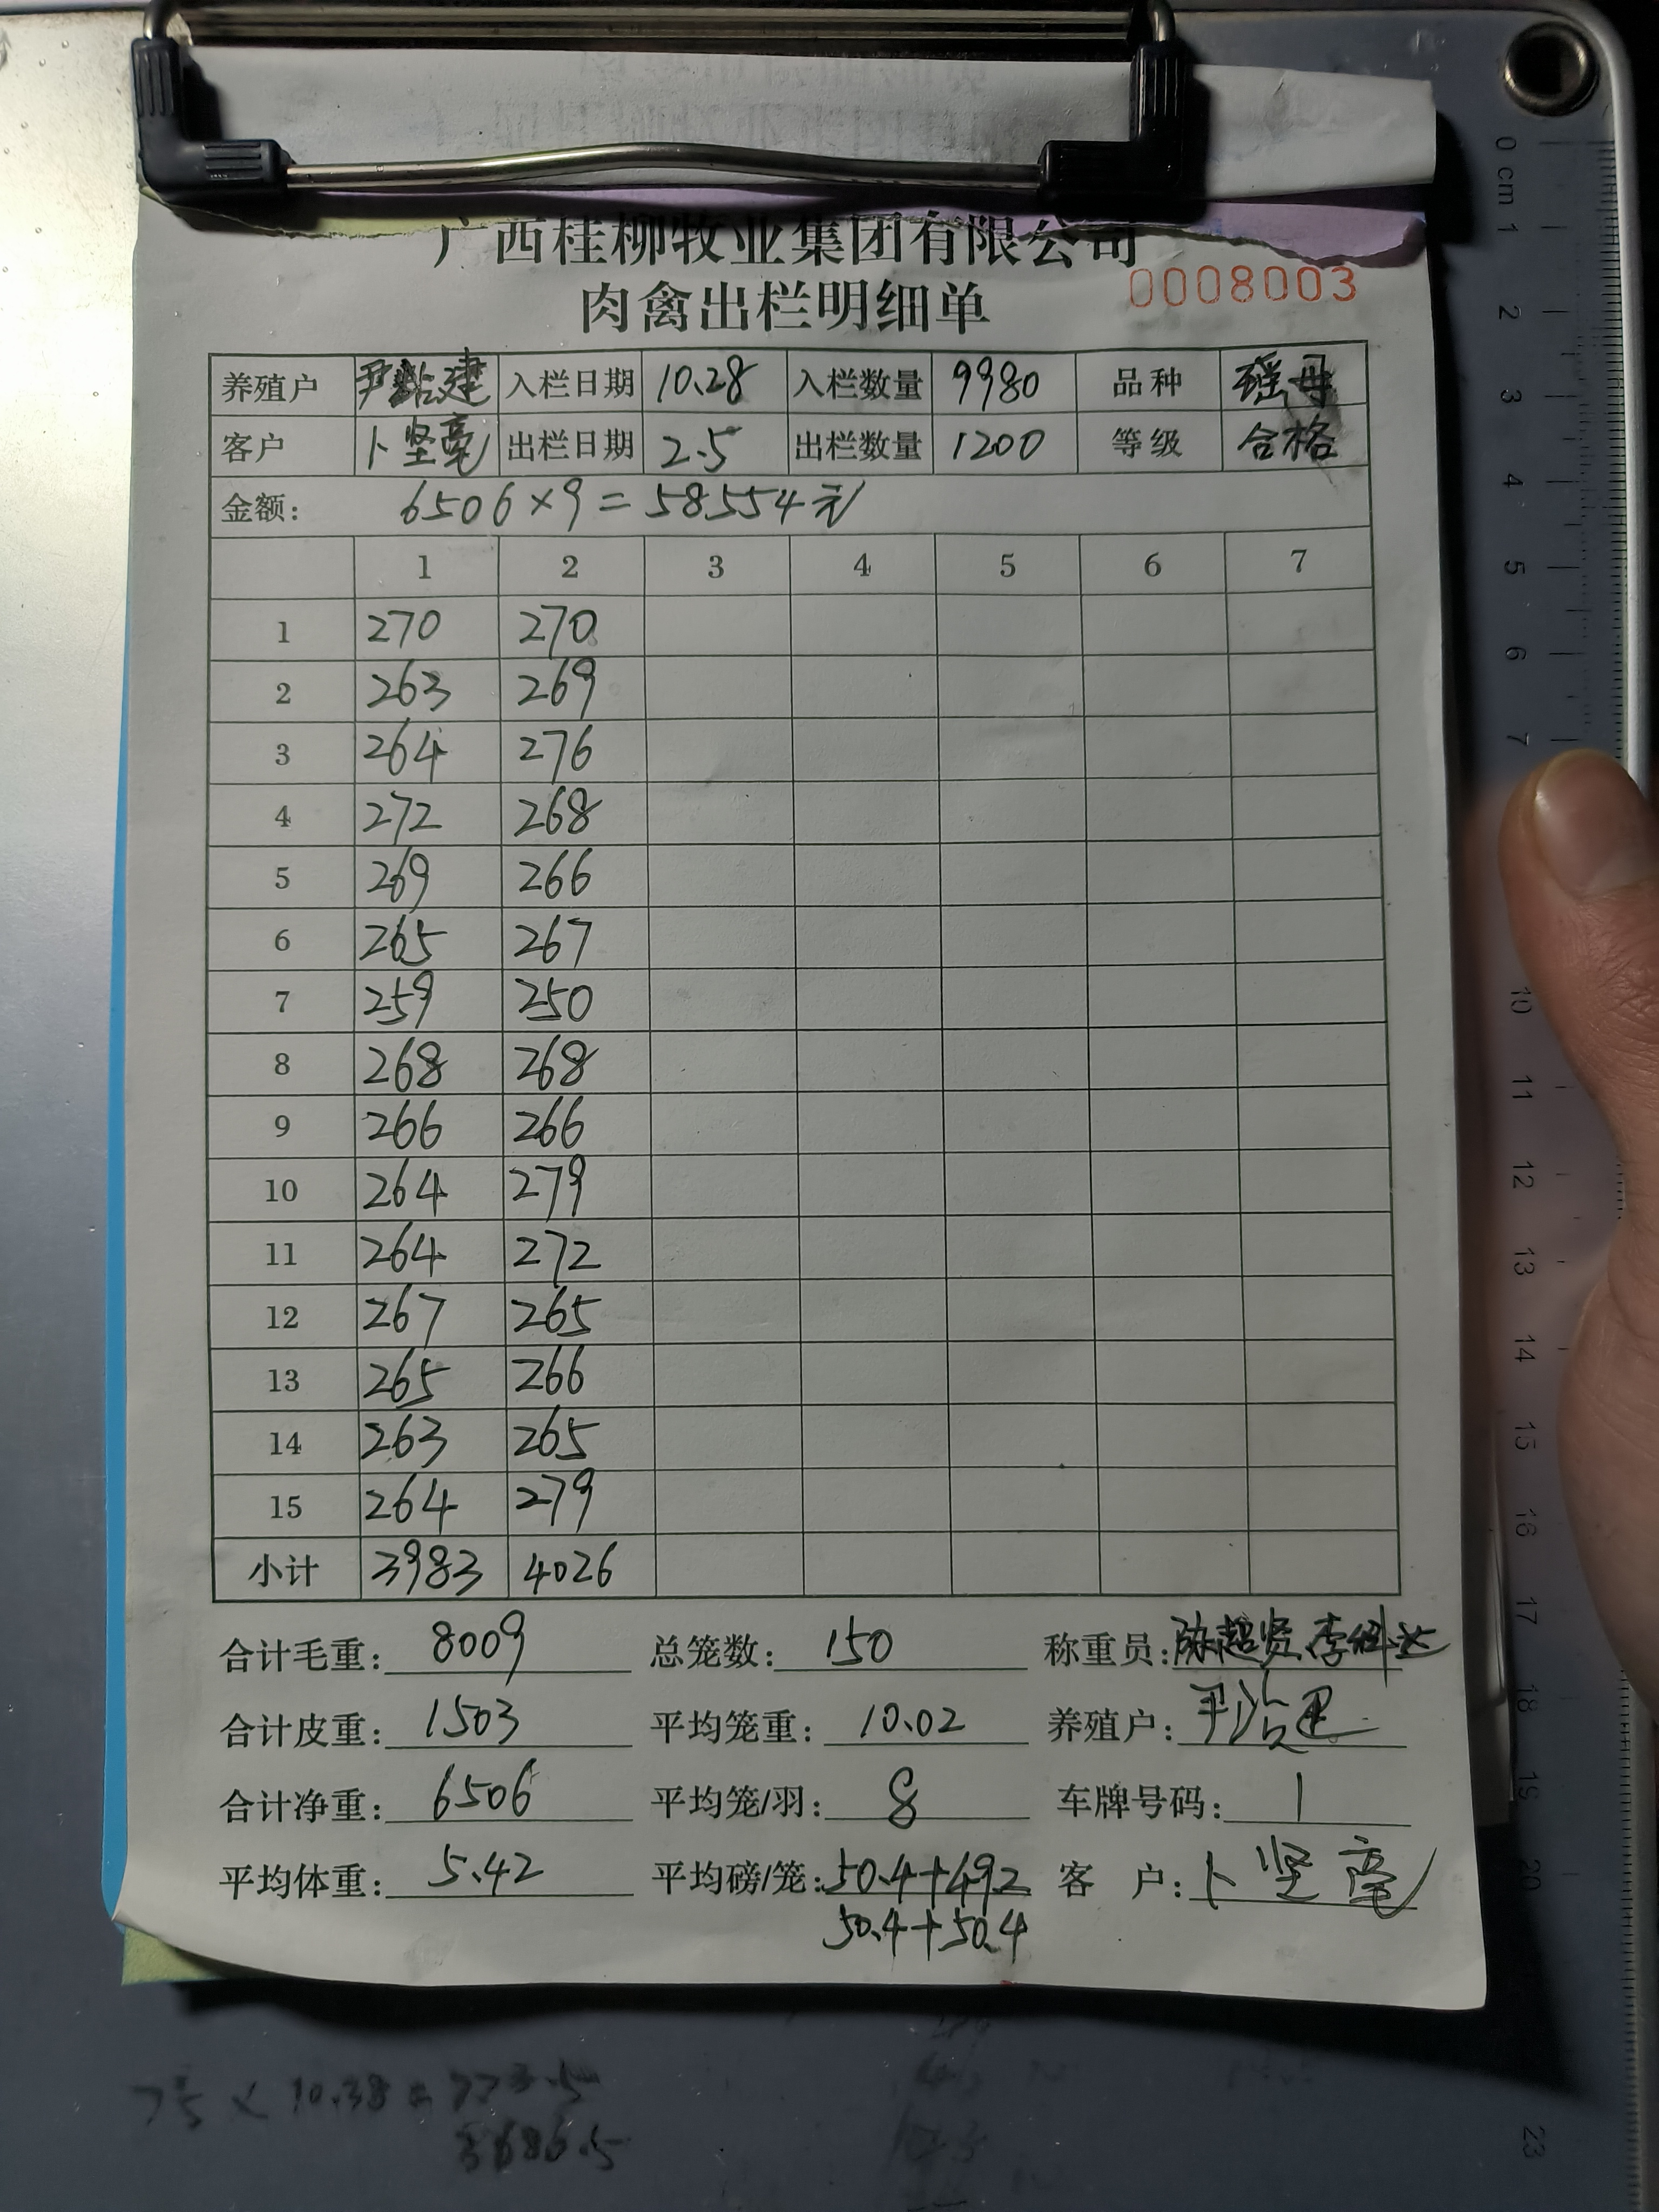 广西桂柳牧业集团有限公司
肉禽出栏明细单
0008003
养殖户 尹 建 入栏日期 10.28 入栏数量 9980 品种 瑶母
客户 卜坚亮 出栏日期 2.5 出栏数量 1200 等级 合格
金额: 6506×9=58554元
1 2 3 4 5 6 7
1 270 270
2 263 269
3 264 276
4 272 268
5 269 266
6 265 267
7 259 250
8 268 268
9 266 266
10 264 279
11 264 272
12 267 265
13 265 266
14 263 265
15 264 279
小计 3983 4026
合计毛重: 8009 总笼数: 150 称重员: 陈超贤 李 达
合计皮重: 1503 平均笼重: 10.02 养殖户: 尹
合计净重: 6506 平均笼/羽: 8 车牌号码: 1
平均体重: 5.42 平均磅/笼: 50.4+49.2 客户: 卜坚亮
50.4+50.4
0 cm 1 2 3 4 5 6 7 10 11 12 13 14 15 16 17 18 19 20 23
75 × 10.38 =